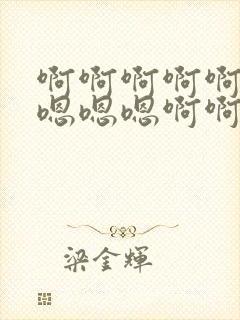 啊啊啊啊啊
嗯嗯嗯啊啊
梁金輝